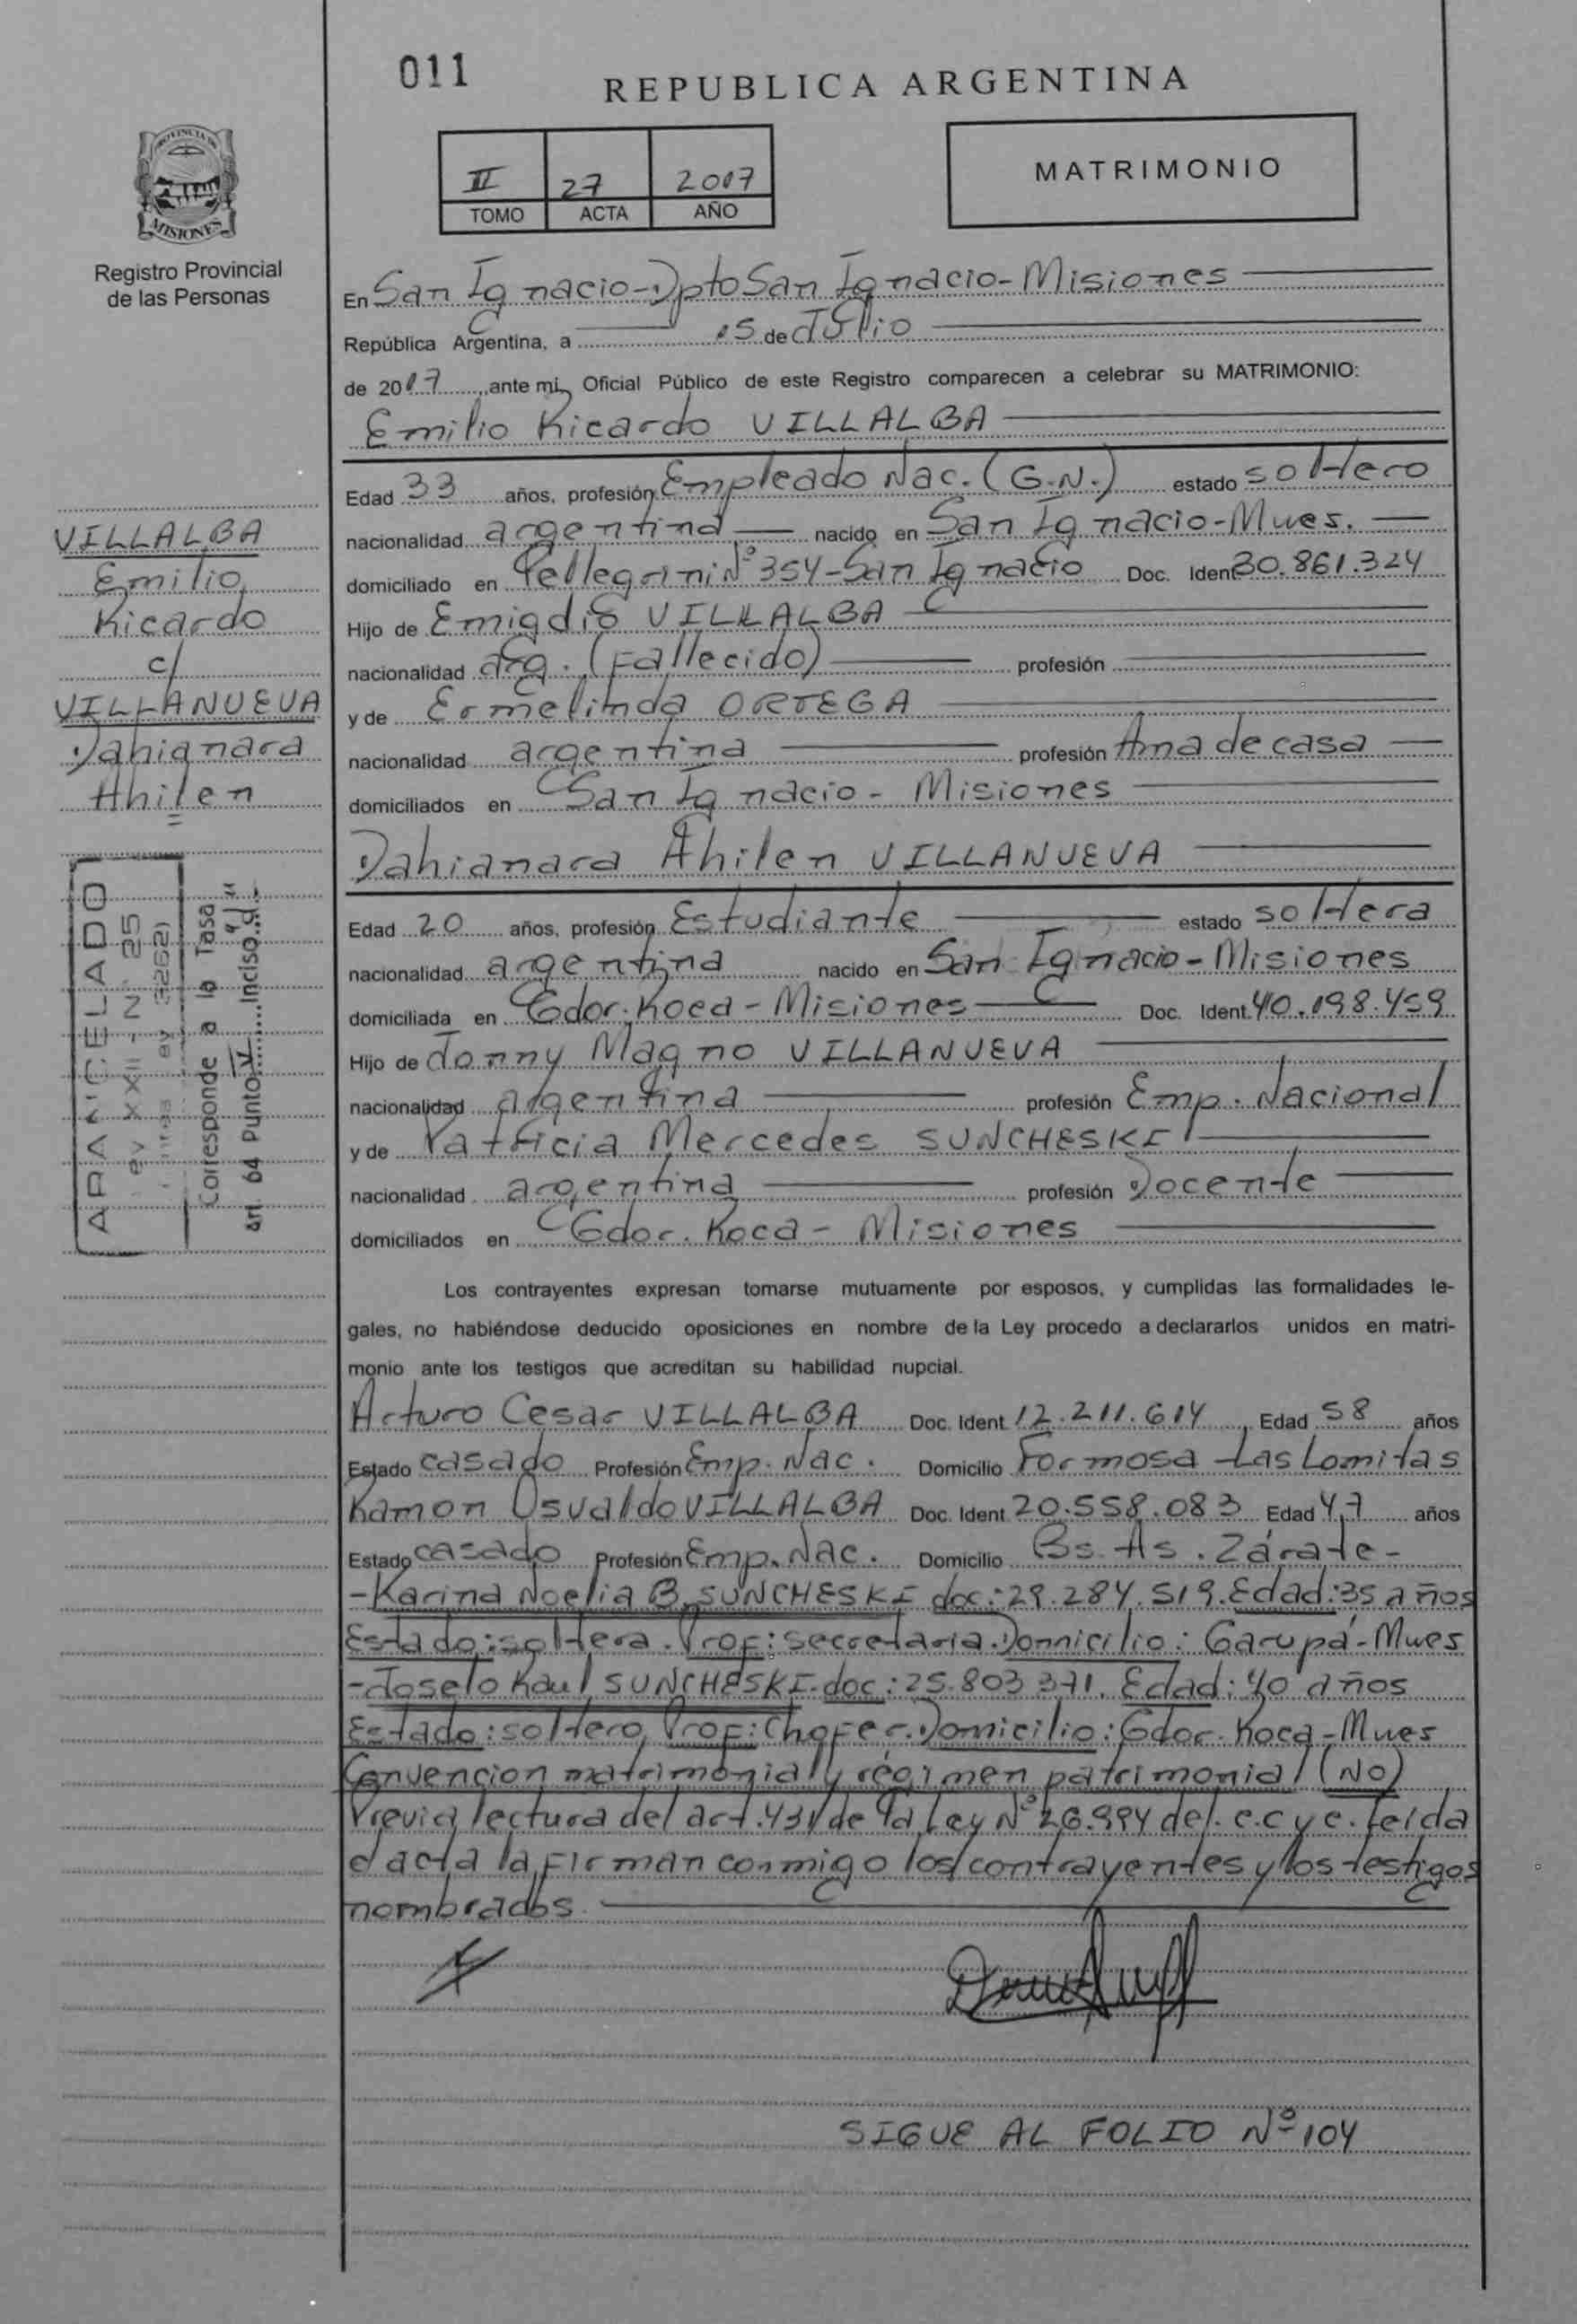 011
REPUBLICA ARGENTINA
II 27 2017
TOMO ACTA AÑO
MATRIMONIO
PROVINCIA DE
MISIONES
Registro Provincial
de las Personas
En San Ignacio-Dpto San Ignacio-Misiones
República Argentina, a 15 de Julio
de 2017, ante mi, Oficial Público de este Registro comparecen a celebrar su MATRIMONIO:
Emilio Ricardo VILLALBA
Edad 33 años, profesión Empleado Nac. (G.N.) estado soltero
nacionalidad argentina nacido en San Ignacio-Mnes.
domiciliado en Pellegrini Nº 354-San Ignacio Doc. Ident 30.861.324
Hijo de Emigdio VILLALBA
nacionalidad arg. (Fallecido) profesión
y de Ermelinda ORTEGA
nacionalidad argentina profesión Ama de casa
domiciliados en San Ignacio - Misiones
Dahianara Ahilen VILLANUEVA
Edad 20 años, profesión Estudiante estado soltera
nacionalidad argentina nacido en San Ignacio-Misiones
domiciliada en Gdor. Roca - Misiones Doc. Ident. 40.198.459
Hijo de Jonny Magno VILLANUEVA
nacionalidad argentina profesión Emp. Nacional
y de Patricia Mercedes SUNCHESKI
nacionalidad argentina profesión Docente
domiciliados en Gdor. Roca - Misiones
Los contrayentes expresan tomarse mutuamente por esposos, y cumplidas las formalidades le-
gales, no habiéndose deducido oposiciones en nombre de la Ley procedo a declararlos unidos en matri-
monio ante los testigos que acreditan su habilidad nupcial.
Arturo Cesar VILLALBA Doc. Ident 12.211.614, Edad 58 años
Estado casado Profesión Emp. Nac. Domicilio Formosa Las Lomitas
Ramon Osvaldo VILLALBA Doc. Ident 20.558.083 Edad 47 años
Estado casado Profesión Emp. Nac. Domicilio Bs. As. Zárate-
-Karina Noelia B. SUNCHESKI doc: 29.284.519. Edad: 35 años
Estado: soltera. Prof: secretaria. Domicilio: Garupá-Mnes
-Joselo Raul SUNCHESKI. doc: 25.803.371. Edad: 40 años
Estado: soltero, Prof: Chofer. Domicilio: Gdor. Roca-Mnes
Convencion matrimonial y regimen patrimonial (NO)
Previa lectura del art. 431 de la Ley Nº 26.994 del. c.c y c. leida
el acta la firman conmigo los contrayentes y los testigos
nombrados.
SIGUE AL FOLIO Nº 104
VILLALBA
Emilio
Ricardo
c/
VILLANUEVA
Dahianara
Ahilen
ARANCELADO
Ley XXII - Nº 25
Corresponde a la Tasa
art. 64 Punto IV Inciso "d"